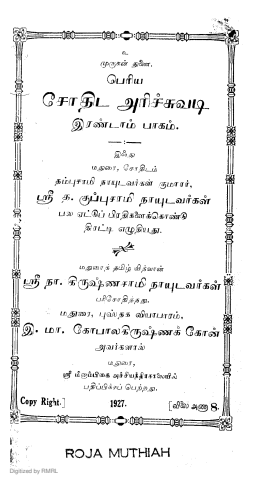 உ
முருகன் துணை.
பெரிய
சோதிட அரிச்சுவடி
இரண்டாம் பாகம்.
இஃது
மதுரை, சோதிடம்
தம்புசாமி நாயுடவர்கள் குமாரர்,
ஸ்ரீ த. குப்புசாமி நாயுடவர்கள்
பல ஏட்டுப் பிரதிகளைக்கொண்டு
திரட்டி எழுதியது.
மதுரைத் தமிழ் வித்வான்
ஸ்ரீ நா. கிருஷ்ணசாமி நாயுடவர்கள்
பரிசோதித்தது.
மதுரை, புஸ்தக வியாபாரம்,
இ. மா. கோபாலகிருஷ்ணக் கோன்
அவர்களால்
மதுரை,
ஸ்ரீ அச்சியந்திரசாலையில்
பதிப்பிக்கப் பெற்றது.
Copy Right.] 1927. [விலை அணா 8.
ROJA MUTHIAH
Digitized by RMRL